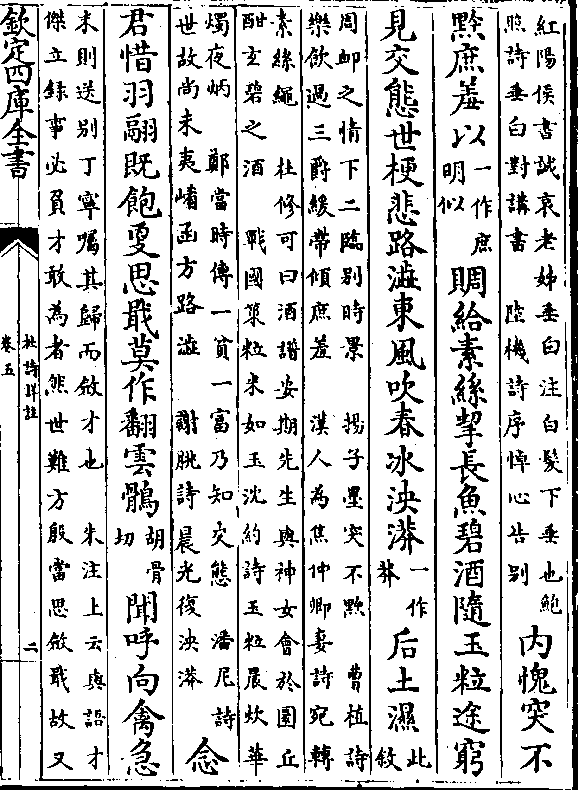 紅陽侯書誠哀老姊垂白注白髮下垂也鮑
照詩垂白對講書　陸機詩序悼心告别
内愧突不
黔庶羞以
一作庶
明似
賙給素絲挈長魚碧酒隨玉粒途窮
見交態世梗悲路澁東風吹春氷泱漭
一作
莽
后土濕
此
敘
周卹之情下二臨别時景　揚子墨突不黔　曹植詩
樂飲過三爵緩帶傾庶羞　漢人為焦仲卿妻詩宛轉
素絲繩　杜修可曰酒譜安期先生與神女會於圜丘
酣玄碧之酒　戰國策粒米如玉沈約詩玉粒晨炊華
燭夜炳　鄭當時傳一貧一富乃知交態　潘尼詩
世故尚未夷崤函方路澁　謝朓詩晨光復泱漭
念
君惜羽翮既飽更思戢莫作翻雲鶻
胡骨
切
聞呼向禽急
末則送别丁寧囑其歸而斂才也　朱注上云與語才
傑立錄事必負才敢為者然世難方殷當思斂戢故又
欽定四庫全書
杜詩詳註
卷五
二